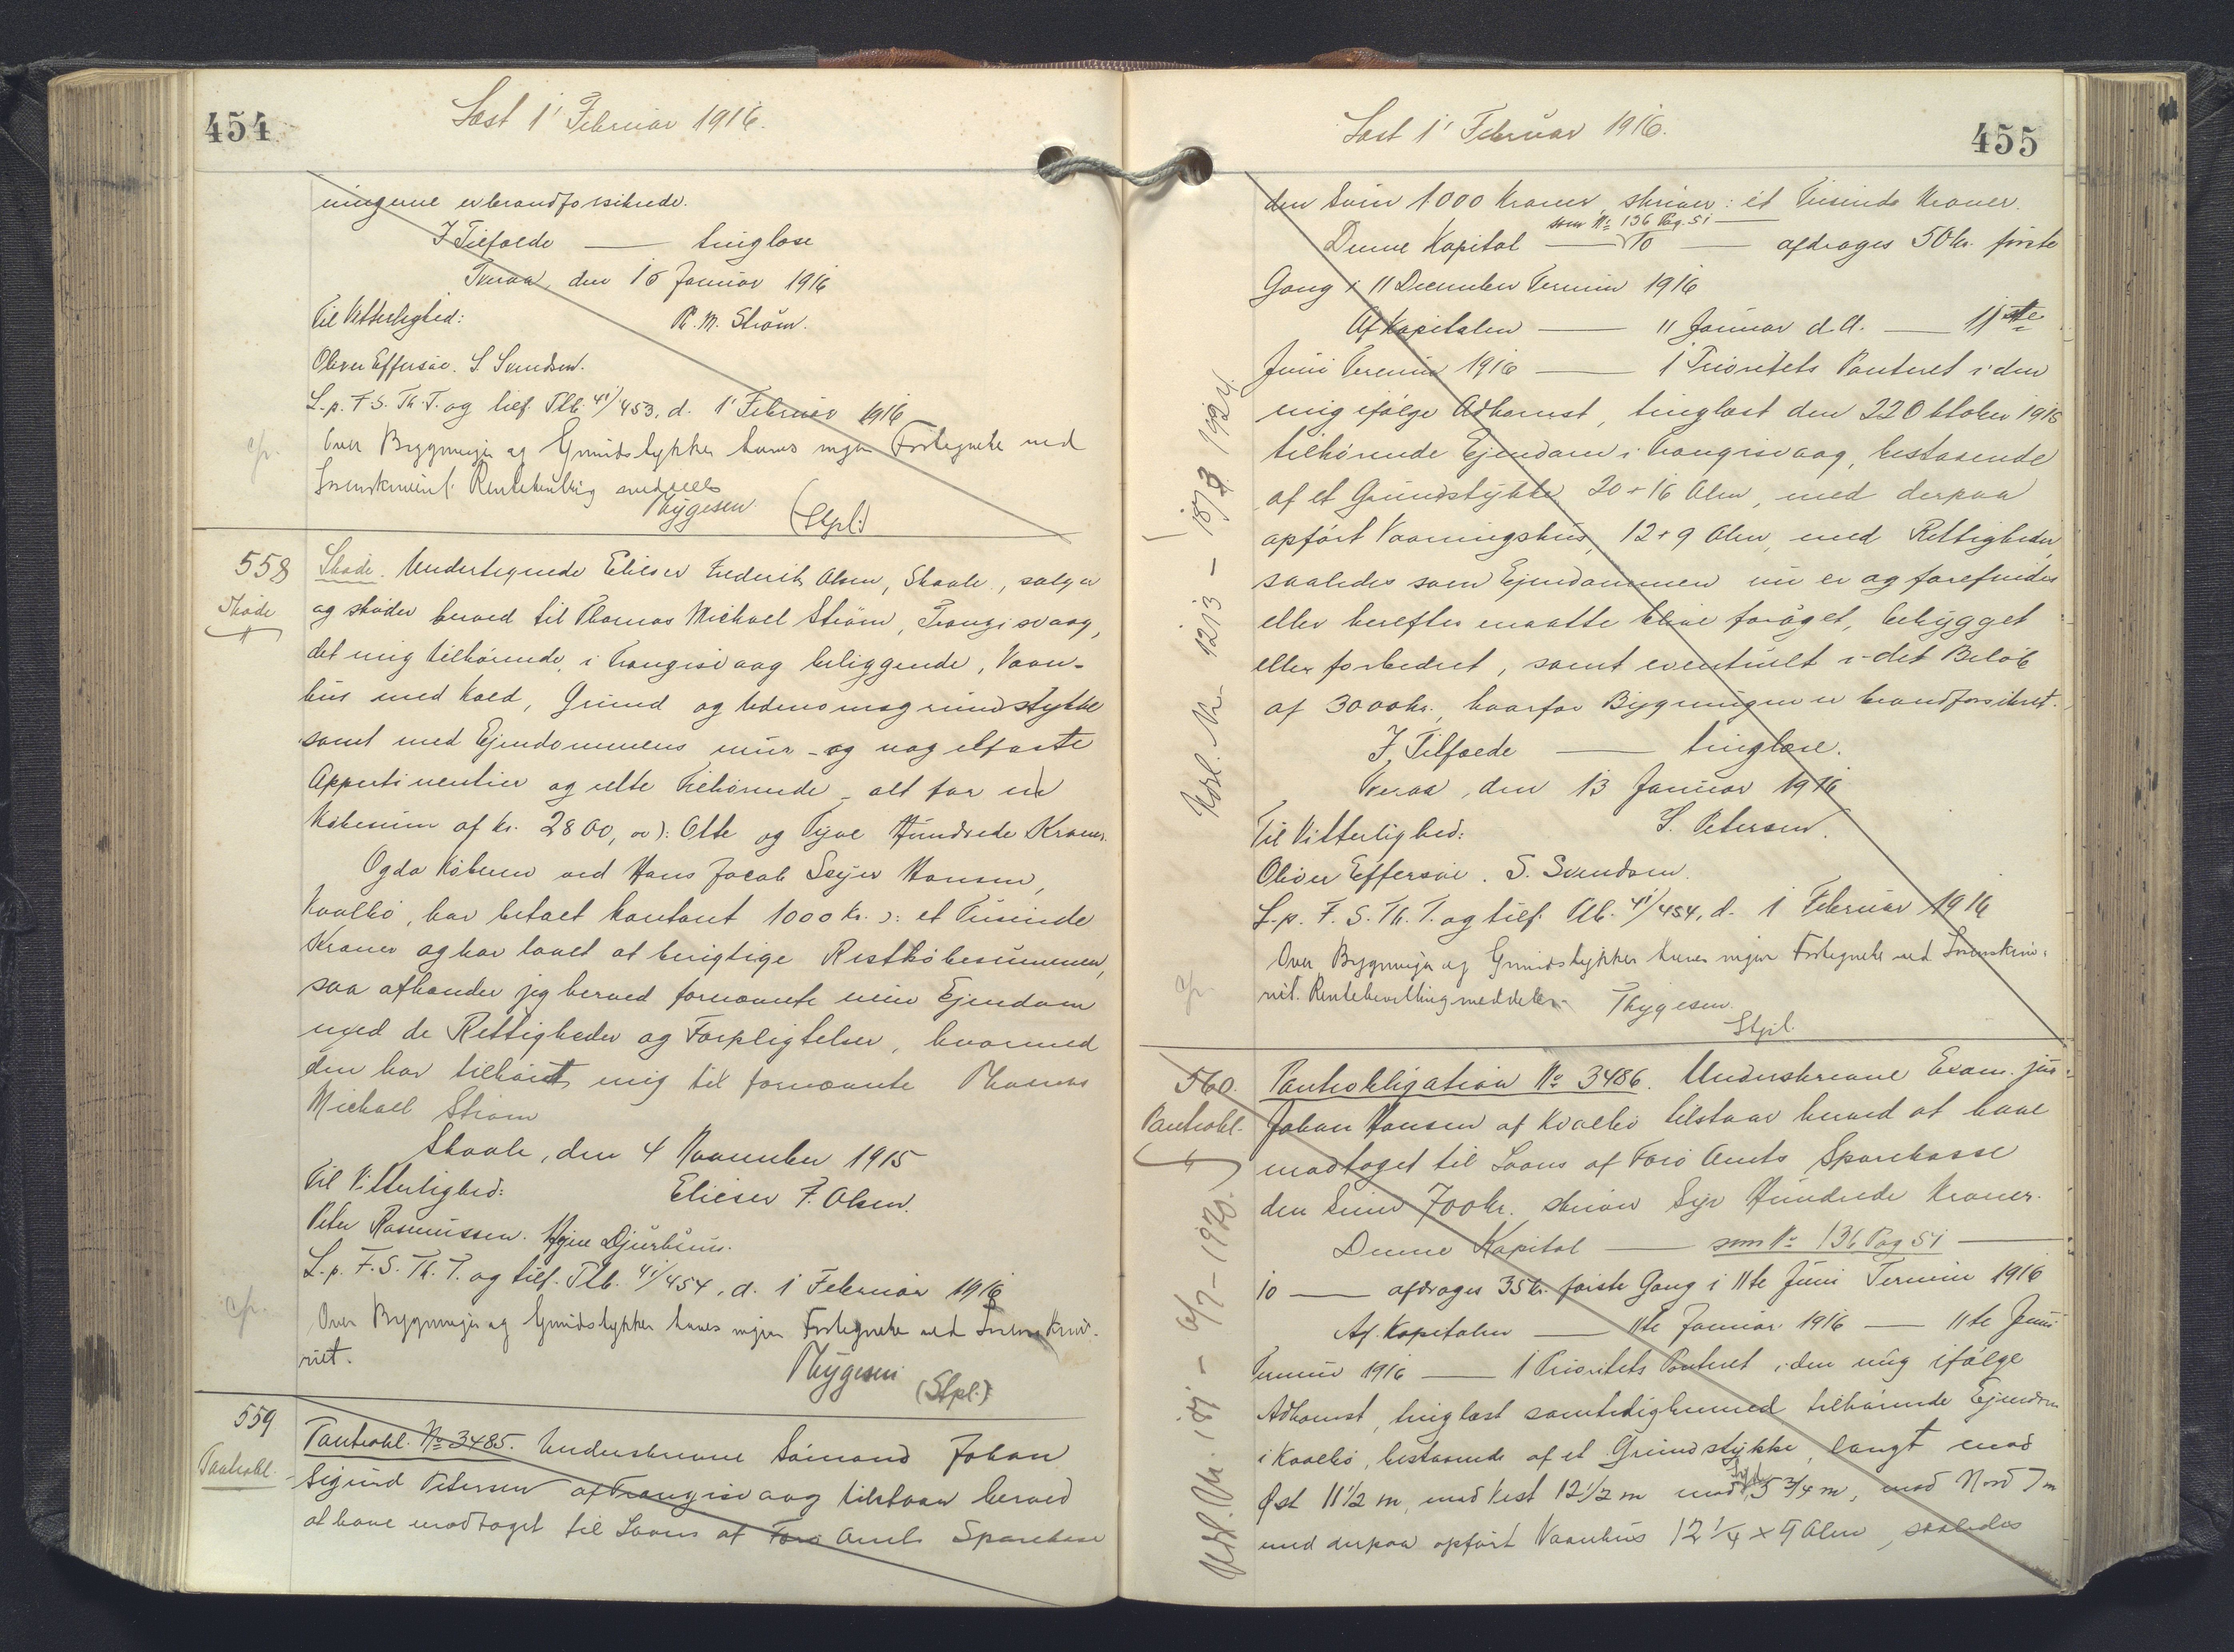 454
Læst 1' Februar 1916.
ningerne er brandforsikrede.
I Tilfælde — tinglæse
Tveraa, den 15 Januar 1916
Til Vitterlighed:
P. M. Strøm.
Oliver Effersøe. S Svendsen.
L. p. F. S. Th. T. og tilf. Ptb. 41/453, d. 1' Februar 1916
cfr.
Over Bygninger og Grundstykker haves ingen Fortegnelse ved
Sorenskriveriet. Rentebevilling meddeles
Thygesen (Stpl.)
558
Skøde
Skøde. Undertegnede Elieser Frederik Olsen, Skaale, sælger
og skøder herved til Thomas Michael Strøm, Trangisvaag,
det mig tilhørende, i Trangisvaag beliggende, Vaan-
hus med Kæld, Grund og Udenomsgrundstykke
samt med Ejendommens mur- og nagelfaste
Appertinentier og rette Tilhørende - alt for en
Købesum af kr. 2800, oo ): Otte og Tyve Hundrede Kroner.
Og da Køberen ved Hans Jacob Sejer Hansen,
Kvalbø, har betalt kontant 1000 Kr. ): et Tusinde
Kroner og har lovet at berigtige Restkøbesummen,
saa afhænder jeg herved fornævnte min Ejendom
med de Rettigheder og Forpligtelser, hvormed
den har tilhørt mig til fornævnte Thomas
Michael Strøm
Skaale, den 4 November 1915
Til Vitterlighed:
Elieser F. Olsen.
Peter Rasmussen. Djurhuus.
L. p. F. S. Th. T. og tilf. Ptb. 41/454, d. 1 Februar 1916
cfr.
Over Bygninger og Grundstykker haves ingen Fortegnelse ved Sorenskriv-
riet.
Thygesen (Stpl.)
559
Pantobl.
Pantobl. No 3485. Underskrevne Sømand Johan
Sigurd Petersen af Trangisvaag tilstaar herved
at have modtaget til Laans af Færø Amts Sparekasse
Læst 1' Februar 1916.
455
den Sum 1000 Kroner, skriver: ét Tusinde Kroner.
som No 136 Pag. 51
Denne Kapital — 10 — afdrages 50 kr. første
Gang i 11 December Termin 1916
Af Kapitalen — 11 Januar d. A. — 11te
Juni Termin 1916 — 1 Prioritets Panteret i den
mig ifølge Adkomst, tinglæst den 22 Oktober 1915
tilhørende Ejendom i Trangisvaag, bestaaende
af et Grundstykke, 20 + 16 Alen, med derpaa
opført Vaaningshus, 12 + 9 Alen, med Rettigheder
saaledes som Ejendommen nu er og forefindes
eller herefter maatte blive forøget, bebygget
eller forbedret, samt eventuelt i det Beløb
af 3000 kr., hvorfor Bygningen er brandforsikret.
I Tilfælde — tinglæse.
Tveraa, den 13 Januar 1916
Til Vitterlighed:
S. Petersen.
Oliver Effersøe. S. Svendsen.
L. p. F. S. Th. T. og tilf. Ptb. 41/454, d. 1 Februar 1916
cfr.
Over Bygninger og Grundstykker haves ingen Fortegnelse ved Sorenskriv-
riet. Rentebevilling meddeles. Thygesen.
Stpl.
560.
Pantobl.
Pantobligation No 3486. Underskrevne Exam. jur.
Johan Hansen af Kvalbø tilstaar herved at have
modtaget til Laans af Færø Amts Sparekasse
den Sum 700 kr. skriver Syv Hundrede Kroner.
Denne Kapital — som No 136 Pag 51 —
10 — afdrages 35 kr. første Gang i 11te Juni Termin 1916
Af Kapitalen — 11te Januar 1916 — 11te Juni
Termin 1916 — 1 Prioritets Panteret i den mig ifølge
Adkomst, tinglæst samtidig hermed tilhørende Ejendom
i Kvalbø, bestaaende af et Grundstykke, langt mod
Øst 11 1/2 m, mod Vest 12 1/2 m mod Syd 5 3/4 m, mod Nord 7 m
med derpaa opført Vaanhus 12 1/4 x 9 Alen, saaledes